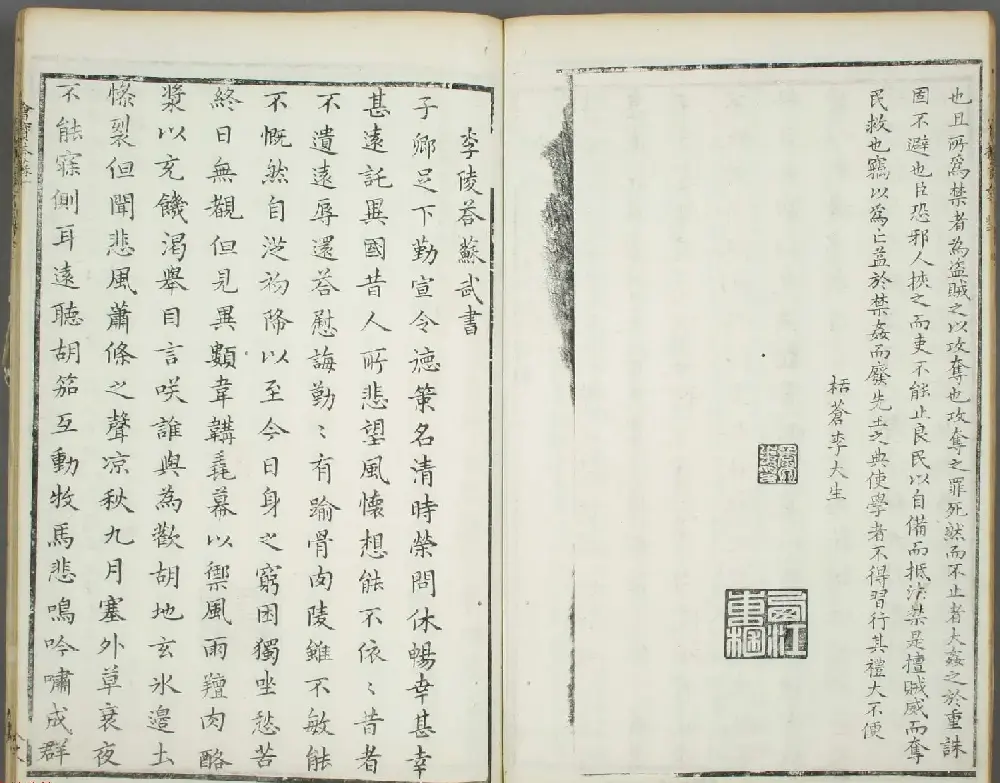 也且所爲禁者為盜賊之以攻奪也攻奪之罪死然而不止者大姦之於重誅
固不避也臣恐邪人挾之而吏不能止良民以自備而抵法禁是擅賊威而奪
民救也竊以爲亡益於禁姦而廢先王之典使學者不得習行其禮大不便
栝蒼李大生
李陵荅蘇武書
子卿足下勤宣令德策名清時榮問休暢幸甚幸
甚遠託異國昔人所悲望風懷想能不依〻昔者
不遺遠辱還荅慰誨勤〻有踰骨肉陵雖不敏能
不慨然自從初降以至今日身之窮困獨坐愁苦
終日無覩但見異類韋韝毳幕以禦風雨羶肉酪
漿以充饑渴舉目言咲誰與為歡胡地玄氷邉土
慘裂但聞悲風蕭條之聲凉秋九月塞外草衰夜
不能寐側耳遠聽胡笳互動牧馬悲鳴吟嘯成群